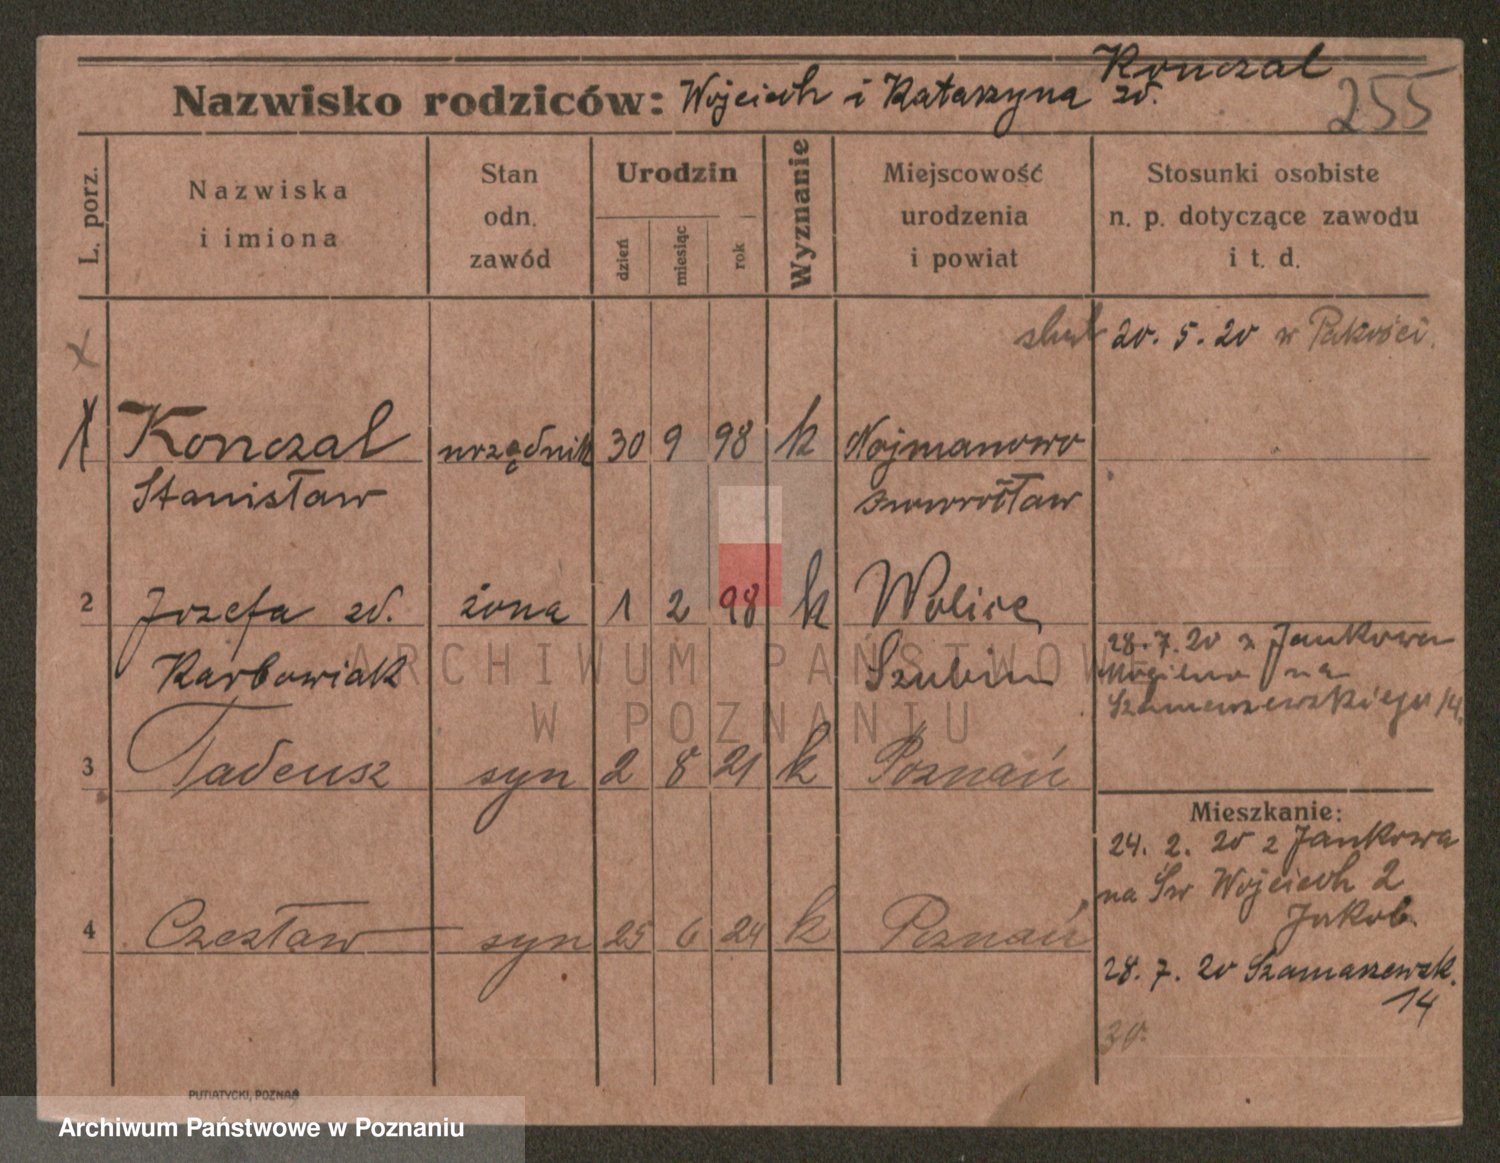 Nazwisko rodziców: Wojciech i Katarzyna zd. Konczal
255
L. porz.
Nazwiska
i imiona
Stan
odn.
zawód
Urodzin
dzień
miesiąc
rok
Wyznanie
Miejscowość
urodzenia
i powiat
Stosunki osobiste
n. p. dotyczące zawodu
i t. d.
x
ślub 20. 5. 20 w Pakości.
1 Konczal urzędnik 30 9 98 k Nojmanowo
Stanisław Inowrocław
2 Jozefa zd. żona 1 2 98 k Wolice
Karbowiak Szubin
28. 7. 20 z Jankowa
Mogilno na
Szamarzewskiego 14.
3 Tadeusz syn 2 8 21 k Poznań
Mieszkanie:
24. 2. 20 z Jankowa
na Św Wojciech 2
Jakob
4 Czesław syn 25 6 24 k Poznań
28. 7. 20 Szamarzewsk.
14
30.
PUTIATYCKI, POZNAŃ
ARCHIWUM PAŃSTWOWE
W POZNANIU
Archiwum Państwowe w Poznaniu